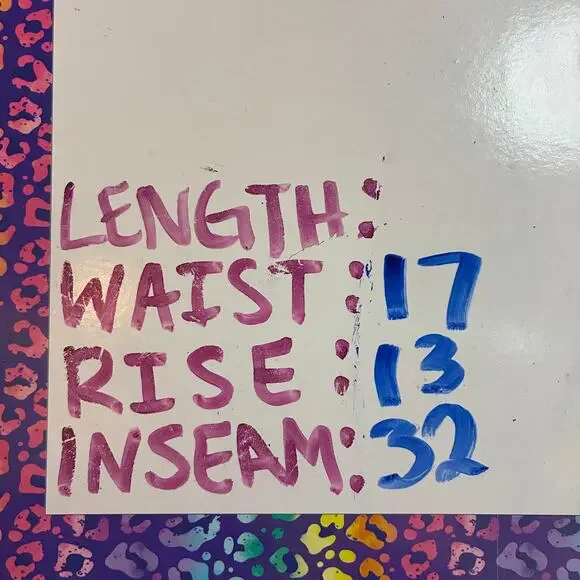 LENGTH:
WAIST: 17
RISE: 13
INSEAM: 32